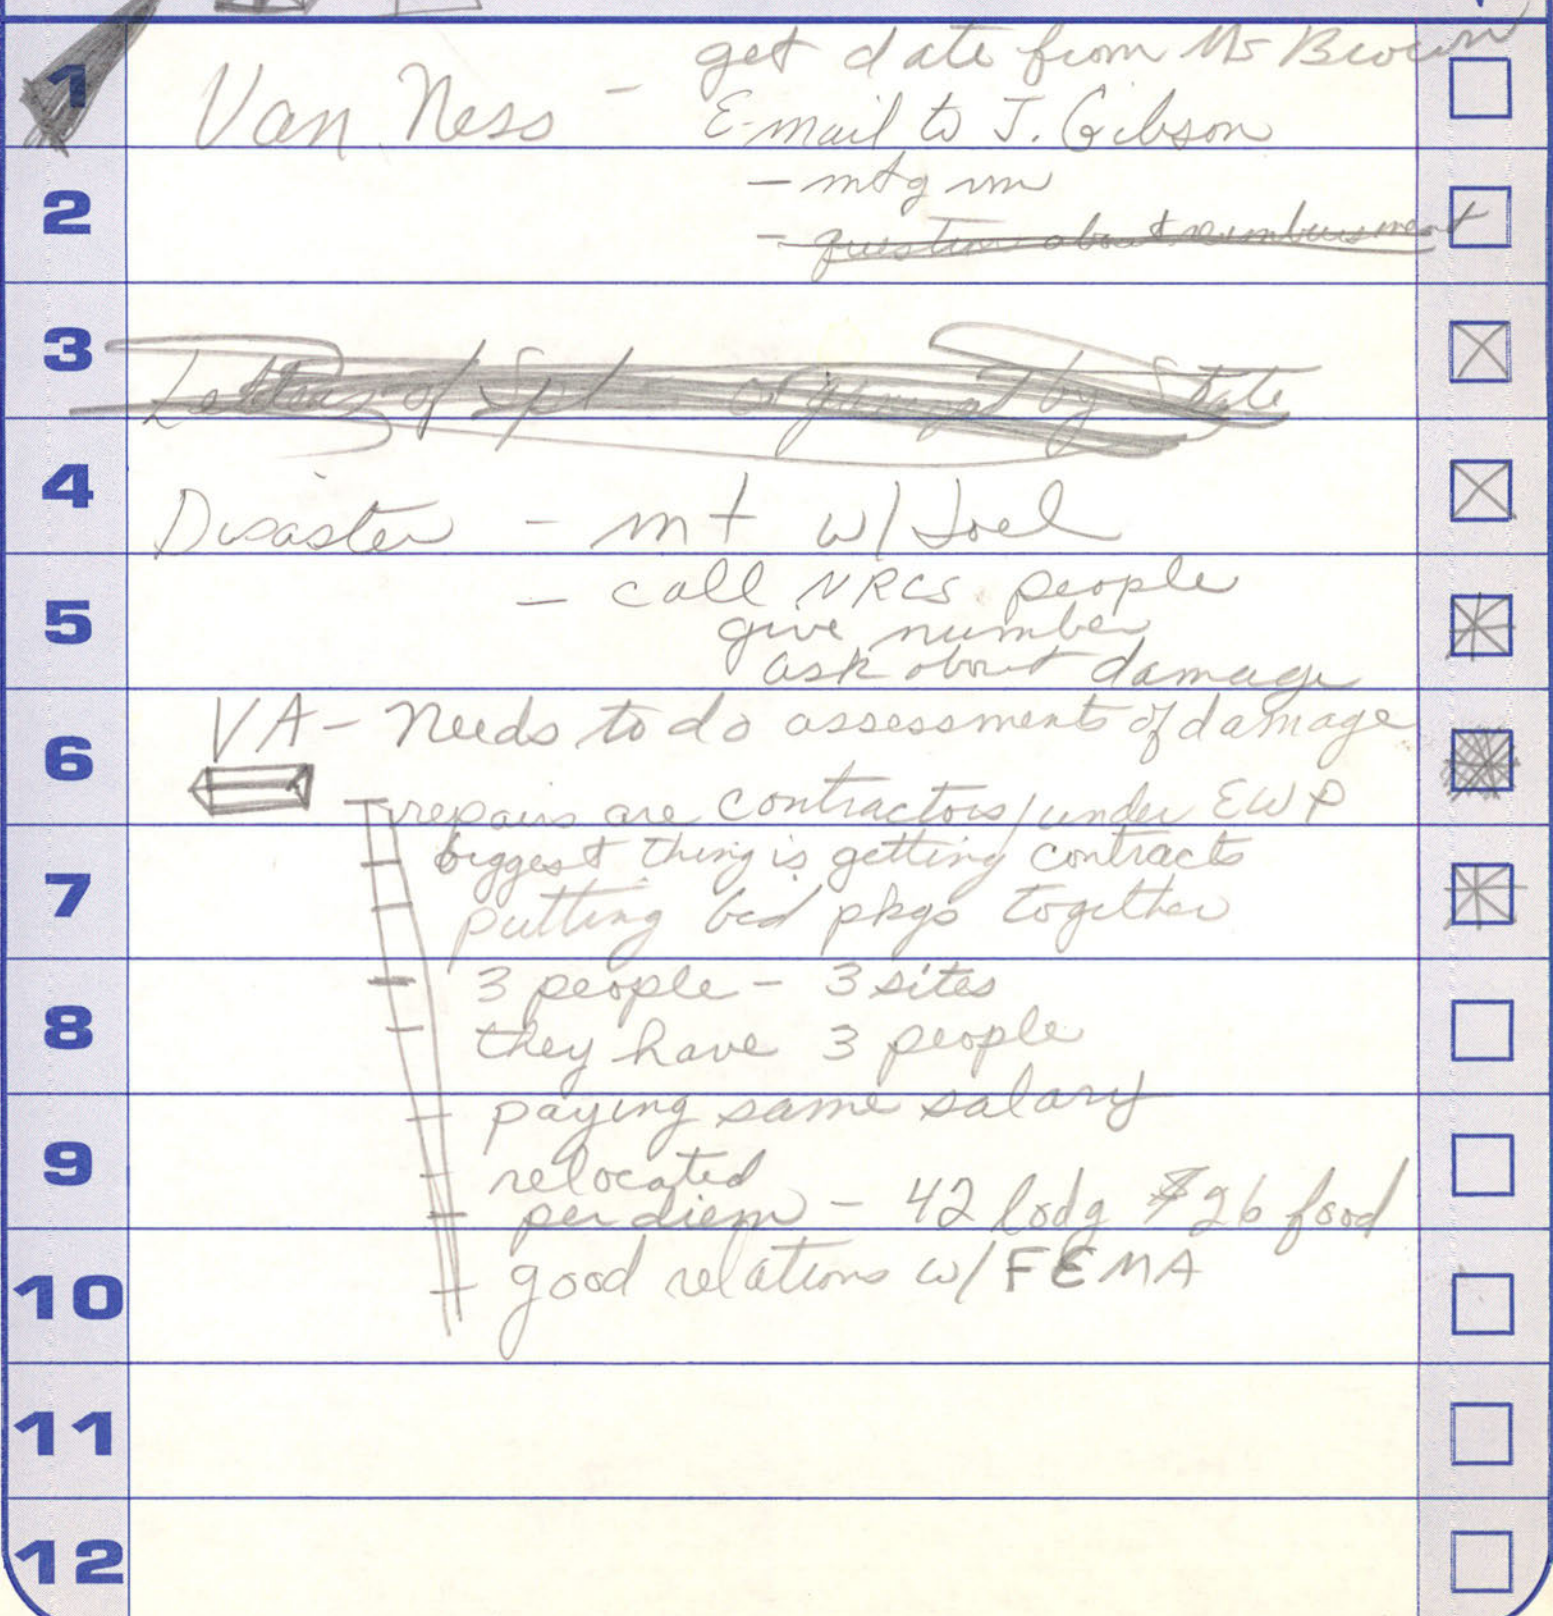 1
get date from Ms Brown
Van Ness -
E-mail to J. Gibson
2
- mtg rm
- question about reimbursement
3
Letters of Spt organized by State
4
Disaster - mt w/ Joel
5
- call NRCS people
give number
ask about damage
6
VA - Needs to do assessments of damage
repairs are contractors/under EWP
7
biggest thing is getting contracts
putting bid pkgs together
8
3 people - 3 sites
they have 3 people
9
paying same salary
relocated
per diem - 42 lodg $26 food
10
good relations w/ FEMA
11
12